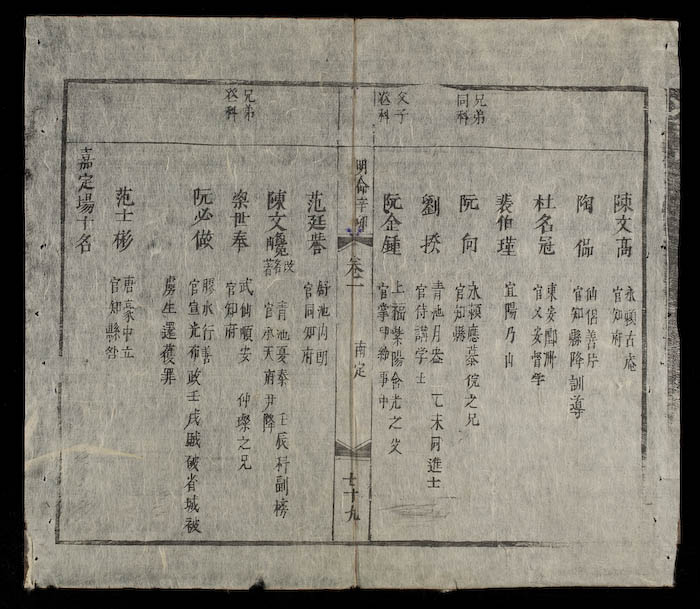 陳文高
永順古庵
官知府
陶儒
仙侶善片
官知縣降訓導
杜名冠
東安
官乂安督學
裴伯瑾
宜陽乃山
兄弟
同科
阮向
永賴應慕
俒之兄
官知縣
劉揆
青池月盎
乙未同進士
官侍講学士
父子
登科
阮金鍾
上福紫陽
之父
官掌印給事中
明命辛卯
卷二
南定
七十九
范廷譽
舒池內朗
官同知府
陳文
改名著
青池夏泰
壬辰科副榜
官承天府尹降
兄弟
登科
黎世奉
武仙順安
仲璨之兄
官知府
阮必做
膠水行善
官宣光布政壬戌賊破省城被
虜生還獲罪
范士彬
唐豪中立
官知縣
嘉定場十名